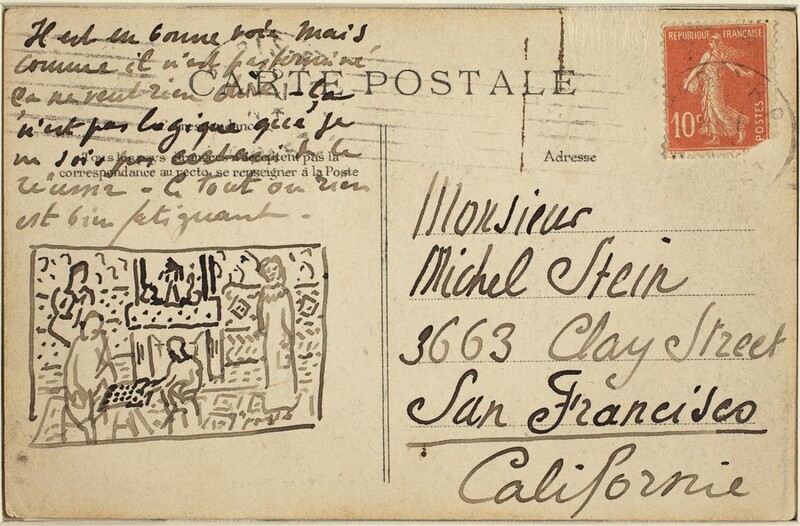 Il est en bonne voie mais
comme il n'est pas terminé
ça ne veut rien dire - la
n'est pas logique que je
ne sois pas certain de le
réussir - le Tout ou rien
est bien fatiguant.
CARTE POSTALE
Correspondance
Tous les pays étrangers n'acceptent pas la
correspondance au recto, se renseigner à la Poste
Adresse
REPUBLIQUE FRANÇAISE
10c
POSTES
Monsieur
Michel Stein
3663 Clay Street
San Francisco
Californie